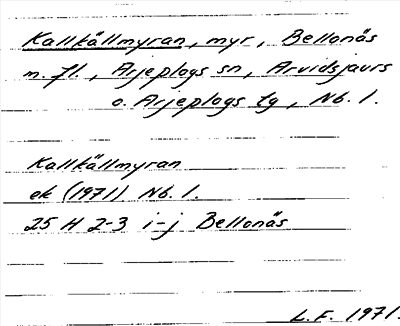 Kallkällmyran, myr, Bellonäs
m. fl., Arjeplogs sn, Arvidsjaurs
o. Arjeplogs tg, Nb. l.
Kallkällmyran
ek (1971) Nb. l.
25 H 2-3 i-j Bellonäs
L.F. 1971.